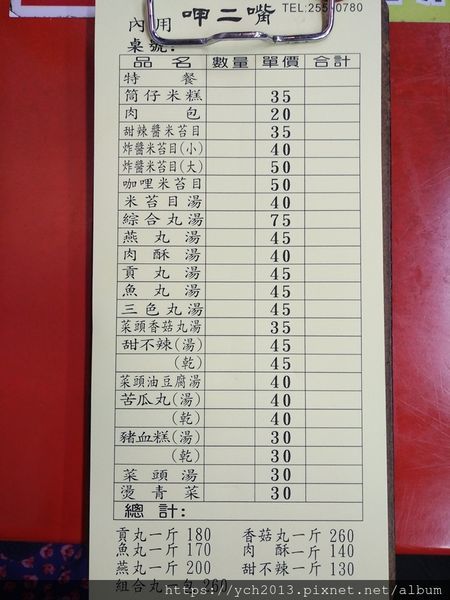 呷二嘴
TEL:255-0780
內用
桌號:
品名 數量 單價 合計
特餐
筒仔米糕 35
肉包 20
甜辣醬米苔目 35
炸醬米苔目(小) 40
炸醬米苔目(大) 50
咖哩米苔目 50
米苔目湯 40
綜合丸湯 75
燕丸湯 45
肉酥湯 40
貢丸湯 45
魚丸湯 45
三色丸湯 45
菜頭香菇丸湯 35
甜不辣(湯) 45
(乾) 45
菜頭油豆腐湯 40
苦瓜丸(湯) 40
(乾) 40
豬血糕(湯) 30
(乾) 30
菜頭湯 30
燙青菜 30
總計:
貢丸一斤 180 香菇丸一斤 260
魚丸一斤 170 肉酥一斤 140
燕丸一斤 200 甜不辣一斤 130
組合丸一包 260
https://ych2013.pixnet.net/album